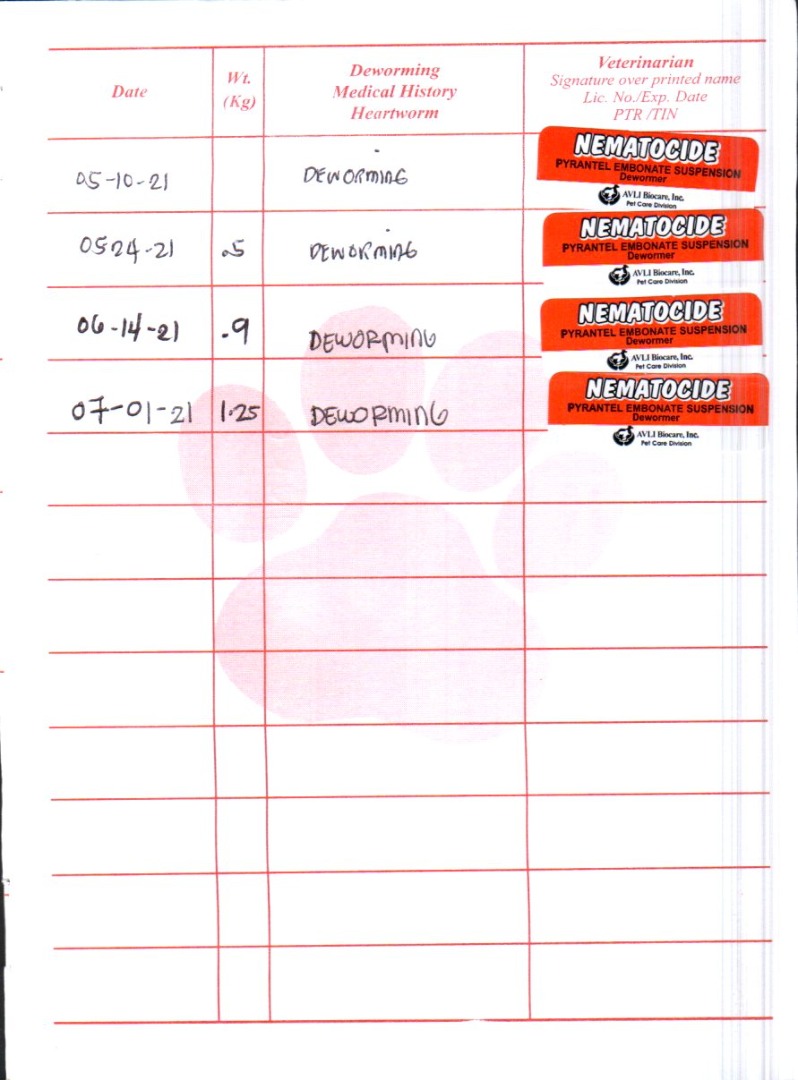 Date
Wt.
(Kg)
Deworming
Medical History
Heartworm
Veterinarian
Signature over printed name
Lic. No./Exp. Date
PTR /TIN
05-10-21
DEWORMING
NEMATOCIDE
PYRANTEL EMBONATE SUSPENSION
Dewormer
AVLI Biocare, Inc.
Pet Care Division
0524-21
.5
DEWORMING
NEMATOCIDE
PYRANTEL EMBONATE SUSPENSION
Dewormer
AVLI Biocare, Inc.
Pet Care Division
06-14-21
.9
DEWORMING
NEMATOCIDE
PYRANTEL EMBONATE SUSPENSION
Dewormer
AVLI Biocare, Inc.
Pet Care Division
07-01-21
1.25
DEWORMING
NEMATOCIDE
PYRANTEL EMBONATE SUSPENSION
Dewormer
AVLI Biocare, Inc.
Pet Care Division